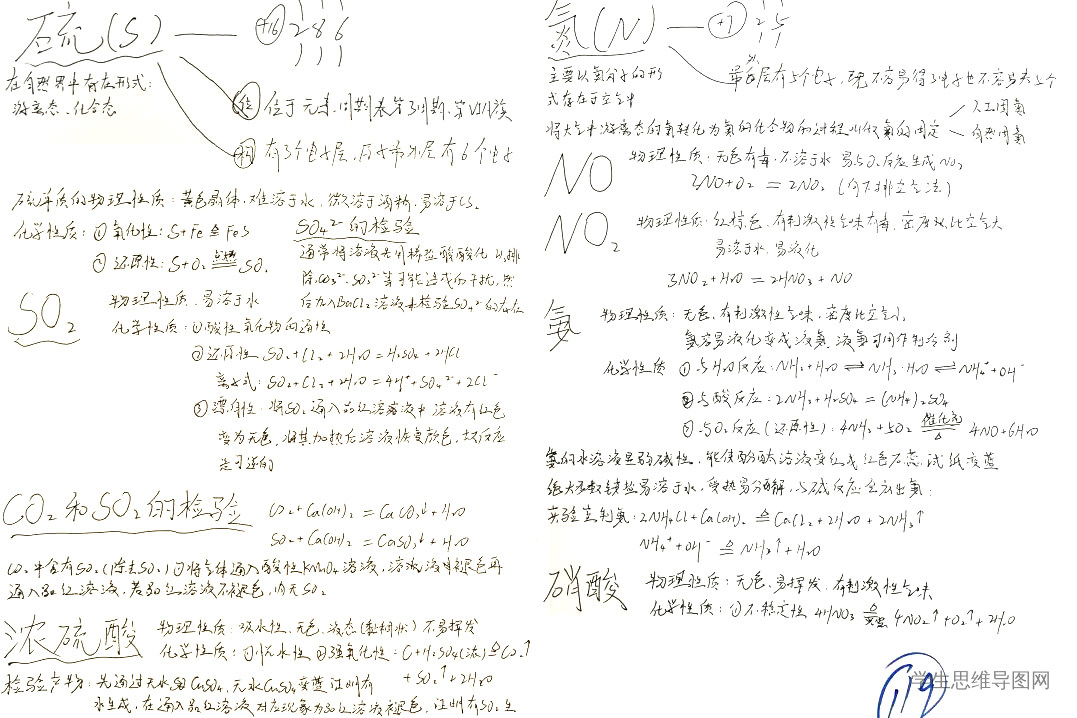 硫(S) +16 2 8 6
在自然界中存在形式:
游离态、化合态
位 位于元素周期表第3周期,第VIA族
构 有3个电子层,原子最外层有6个电子
硫单质的物理性质:黄色晶体,难溶于水,微溶于酒精,易溶于CS₂
化学性质:①氧化性:S+Fe ≜ FeS
②还原性:S+O₂ 点燃 SO₂
SO₄²⁻的检验
通常将溶液先用稀盐酸酸化 以排
除CO₃²⁻,SO₃²⁻等可能造成的干扰,然
后加入BaCl₂溶液来检验SO₄²⁻的存在
SO₂
物理性质:易溶于水
化学性质:①酸性氧化物的通性
②还原性 SO₂+Cl₂+2H₂O=H₂SO₄+2HCl
离子式:SO₂+Cl₂+2H₂O=4H⁺+SO₄²⁻+2Cl⁻
③漂白性:将SO₂通入品红溶液中 溶液有红色
变为无色,将其加热后溶液恢复颜色,故反应
是可逆的
CO₂和SO₂的检验
CO₂+Ca(OH)₂=CaCO₃↓+H₂O
SO₂+Ca(OH)₂=CaSO₃↓+H₂O
CO₂中含有SO₂(除去SO₂)可将气体通入酸性KMnO₄溶液,溶液褪色再
通入品红溶液,若品红溶液不褪色,则无SO₂
浓硫酸
物理性质:吸水性,无色,液态(黏稠状)不易挥发
化学性质:①脱水性 ②强氧化性=C+H₂SO₄(浓)≜CO₂↑
+SO₂↑+2H₂O
检验产物:先通过无水CuSO₄,无水CuSO₄变蓝证明有
水生成,在通入品红溶液对应现象为品红溶液褪色,证明有SO₂生
氮(N) +7 2 5
主要以氮分子的形
式存在于空气中
最外层有5个电子,既不容易得3电子也不容易失5个
将大气中游离态的氮转化为氮的化合物的过程叫做氮的固定
人工固氮
自然固氮
NO
物理性质:无色有毒,不溶于水 易与O₂反应生成NO₂
2NO+O₂=2NO₂(行不排空气法)
NO₂
物理性质:红棕色,有刺激性气味有毒,密度比空气大
易溶于水,易液化
3NO₂+H₂O=2HNO₃+NO
氨
物理性质:无色,有刺激性气味,密度比空气小,
氨容易液化变成液氨 液氨可用作制冷剂
化学性质 ①与H₂O反应:NH₃+H₂O⇌NH₃·H₂O⇌NH₄⁺+OH⁻
②与酸反应:2NH₃+H₂SO₄=(NH₄)₂SO₄
③与O₂反应(还原性):4NH₃+5O₂ 催化剂 △ 4NO+6H₂O
氨的水溶液显弱碱性,能使酚酞溶液变红或红色石蕊试纸变蓝
绝大多数铵盐易溶于水,受热易分解,与碱反应会放出氨:
实验室制氨:2NH₄Cl+Ca(OH)₂≜CaCl₂+2H₂O+2NH₃↑
NH₄⁺+OH⁻≜NH₃↑+H₂O
硝酸
物理性质:无色,易挥发,有刺激性气味
化学性质:①不稳定性 4HNO₃ △ 4NO₂↑+O₂↑+2H₂O
119
学生思维导图网